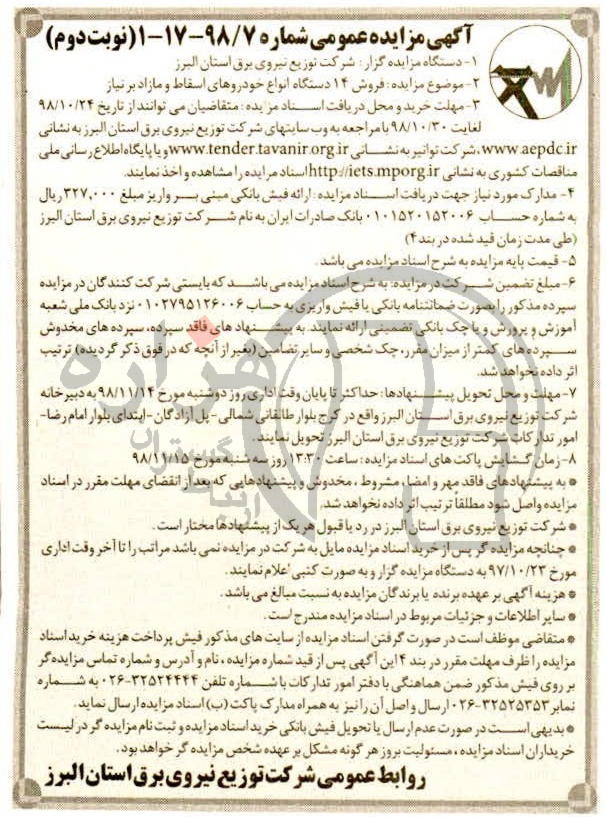 آگهی مزایده عمومی شماره ۹۸/۷-۱۷-۱(نوبت دوم)
۱- دستگاه مزایده گزار: شرکت توزیع نیروی برق استان البرز
۲-موضوع مزایده: فروش ۱۴ دستگاه انواع خودروهای اسقاط و مازاد بر نیاز
۳-مهلت خرید و محل دریافت اسناد مزایده: متقاضیان می توانند از تاریخ ۹۸/۱۰/۲۴
لغایت ۹۸/۱۰/۳۰ با مراجعه به وب سایتهای شرکت توزیع نیروی برق استان البرز به نشانی
www.aepdc.ir، شرکت توانیر به نشانی www.tender.tavanir.org.ir و یا پایگاه اطلاع رسانی ملی
مناقصات کشوری به نشانی http://iets.mporg.ir اسناد مزایده را مشاهده و اخذ نمایند.
۴- مدارک مورد نیاز جهت دریافت اسناد مزایده: ارائه فیش بانکی مبنی بر واریز مبلغ ۳۲۷,۰۰۰ ریال
به شماره حساب ۰۱۰۱۵۲۰۱۵۲۰۰۶ بانک صادرات ایران به نام شرکت توزیع نیروی برق استان البرز
(طی مدت زمان قید شده در بند ۴)
۵- قیمت پایه مزایده به شرح اسناد مزایده می باشد.
۶-مبلغ تضمین شرکت در مزایده: به شرح اسناد مزایده می باشد که بایستی شرکت کنندگان در مزایده
سپرده مذکور را بصورت ضمانتنامه بانکی یا فیش واریزی به حساب ۰۱۰۲۷۹۵۱۲۶۰۰۶ نزد بانک ملی شعبه
آموزش و پرورش و یا چک بانکی تضمینی ارائه نمایند. به پیشنهاد های فاقد سپرده، سپرده های مخدوش
سپرده های کمتر از میزان مقرر، چک شخصی و سایر تضامین (بغیر از آنچه که در فوق ذکر گردید) ترتیب
اثر داده نخواهد شد.
۷-مهلت و محل تحویل پیشنهادها: حداکثر تا پایان وقت اداری روز دوشنبه مورخ ۹۸/۱۱/۱۴ به دبیرخانه
شرکت توزیع نیروی برق استان البرز واقع در کرج بلوار طالقانی شمالی-پل آزادگان-ابتدای بلوار امام رضا-
امور تدارکات شرکت توزیع نیروی برق استان البرز تحویل نمایند.
۸-زمان گشایش پاکت های اسناد مزایده: ساعت ۱۳:۳۰ روز سه شنبه مورخ ۹۸/۱۱/۱۵
* به پیشنهادهای فاقد مهر و امضا، مشروط، مخدوش و پیشنهادهایی که بعد از انقضای مهلت مقرر در اسناد
مزایده واصل شود مطلقاً ترتیب اثر داده نخواهد شد.
* شرکت توزیع نیروی برق استان البرز در رد یا قبول هر یک از پیشنهادها مختار است.
* چنانچه مزایده گر پس از خرید اسناد مزایده مایل به شرکت در مزایده نمی باشد مراتب را تا آخر وقت اداری
مورخ ۹۷/۱۰/۲۳ به دستگاه مزایده گزار و به صورت کتبی اعلام نمایند.
* هزینه آگهی بر عهده برنده یا برندگان مزایده به نسبت مبالغ می باشد.
* سایر اطلاعات و جزئیات مربوط در اسناد مزایده مندرج است.
* متقاضی موظف است در صورت گرفتن اسناد مزایده از سایت های مذکور فیش پرداخت هزینه خرید اسناد
مزایده را ظرف مهلت مقرر در بند ۴ این آگهی پس از قید شماره مزایده، نام و آدرس و شماره تماس مزایده گر
بر روی فیش مذکور ضمن هماهنگی با دفتر امور تدارکات با شماره تلفن ۳۲۵۲۴۴۴۴-۰۲۶ به شماره
نمابر ۳۲۵۲۵۳۵۳-۰۲۶ ارسال و اصل آن را نیز به همراه مدارک پاکت (ب) اسناد مزایده ارسال نماید.
* بدیهی است در صورت عدم ارسال یا تحویل فیش بانکی خرید اسناد مزایده و ثبت نام مزایده گر در لیست
خریداران اسناد مزایده، مسئولیت بروز هر گونه مشکل بر عهده شخص مزایده گر خواهد بود.
روابط عمومی شرکت توزیع نیروی برق استان البرز
هزاره
گستران
ارتباط